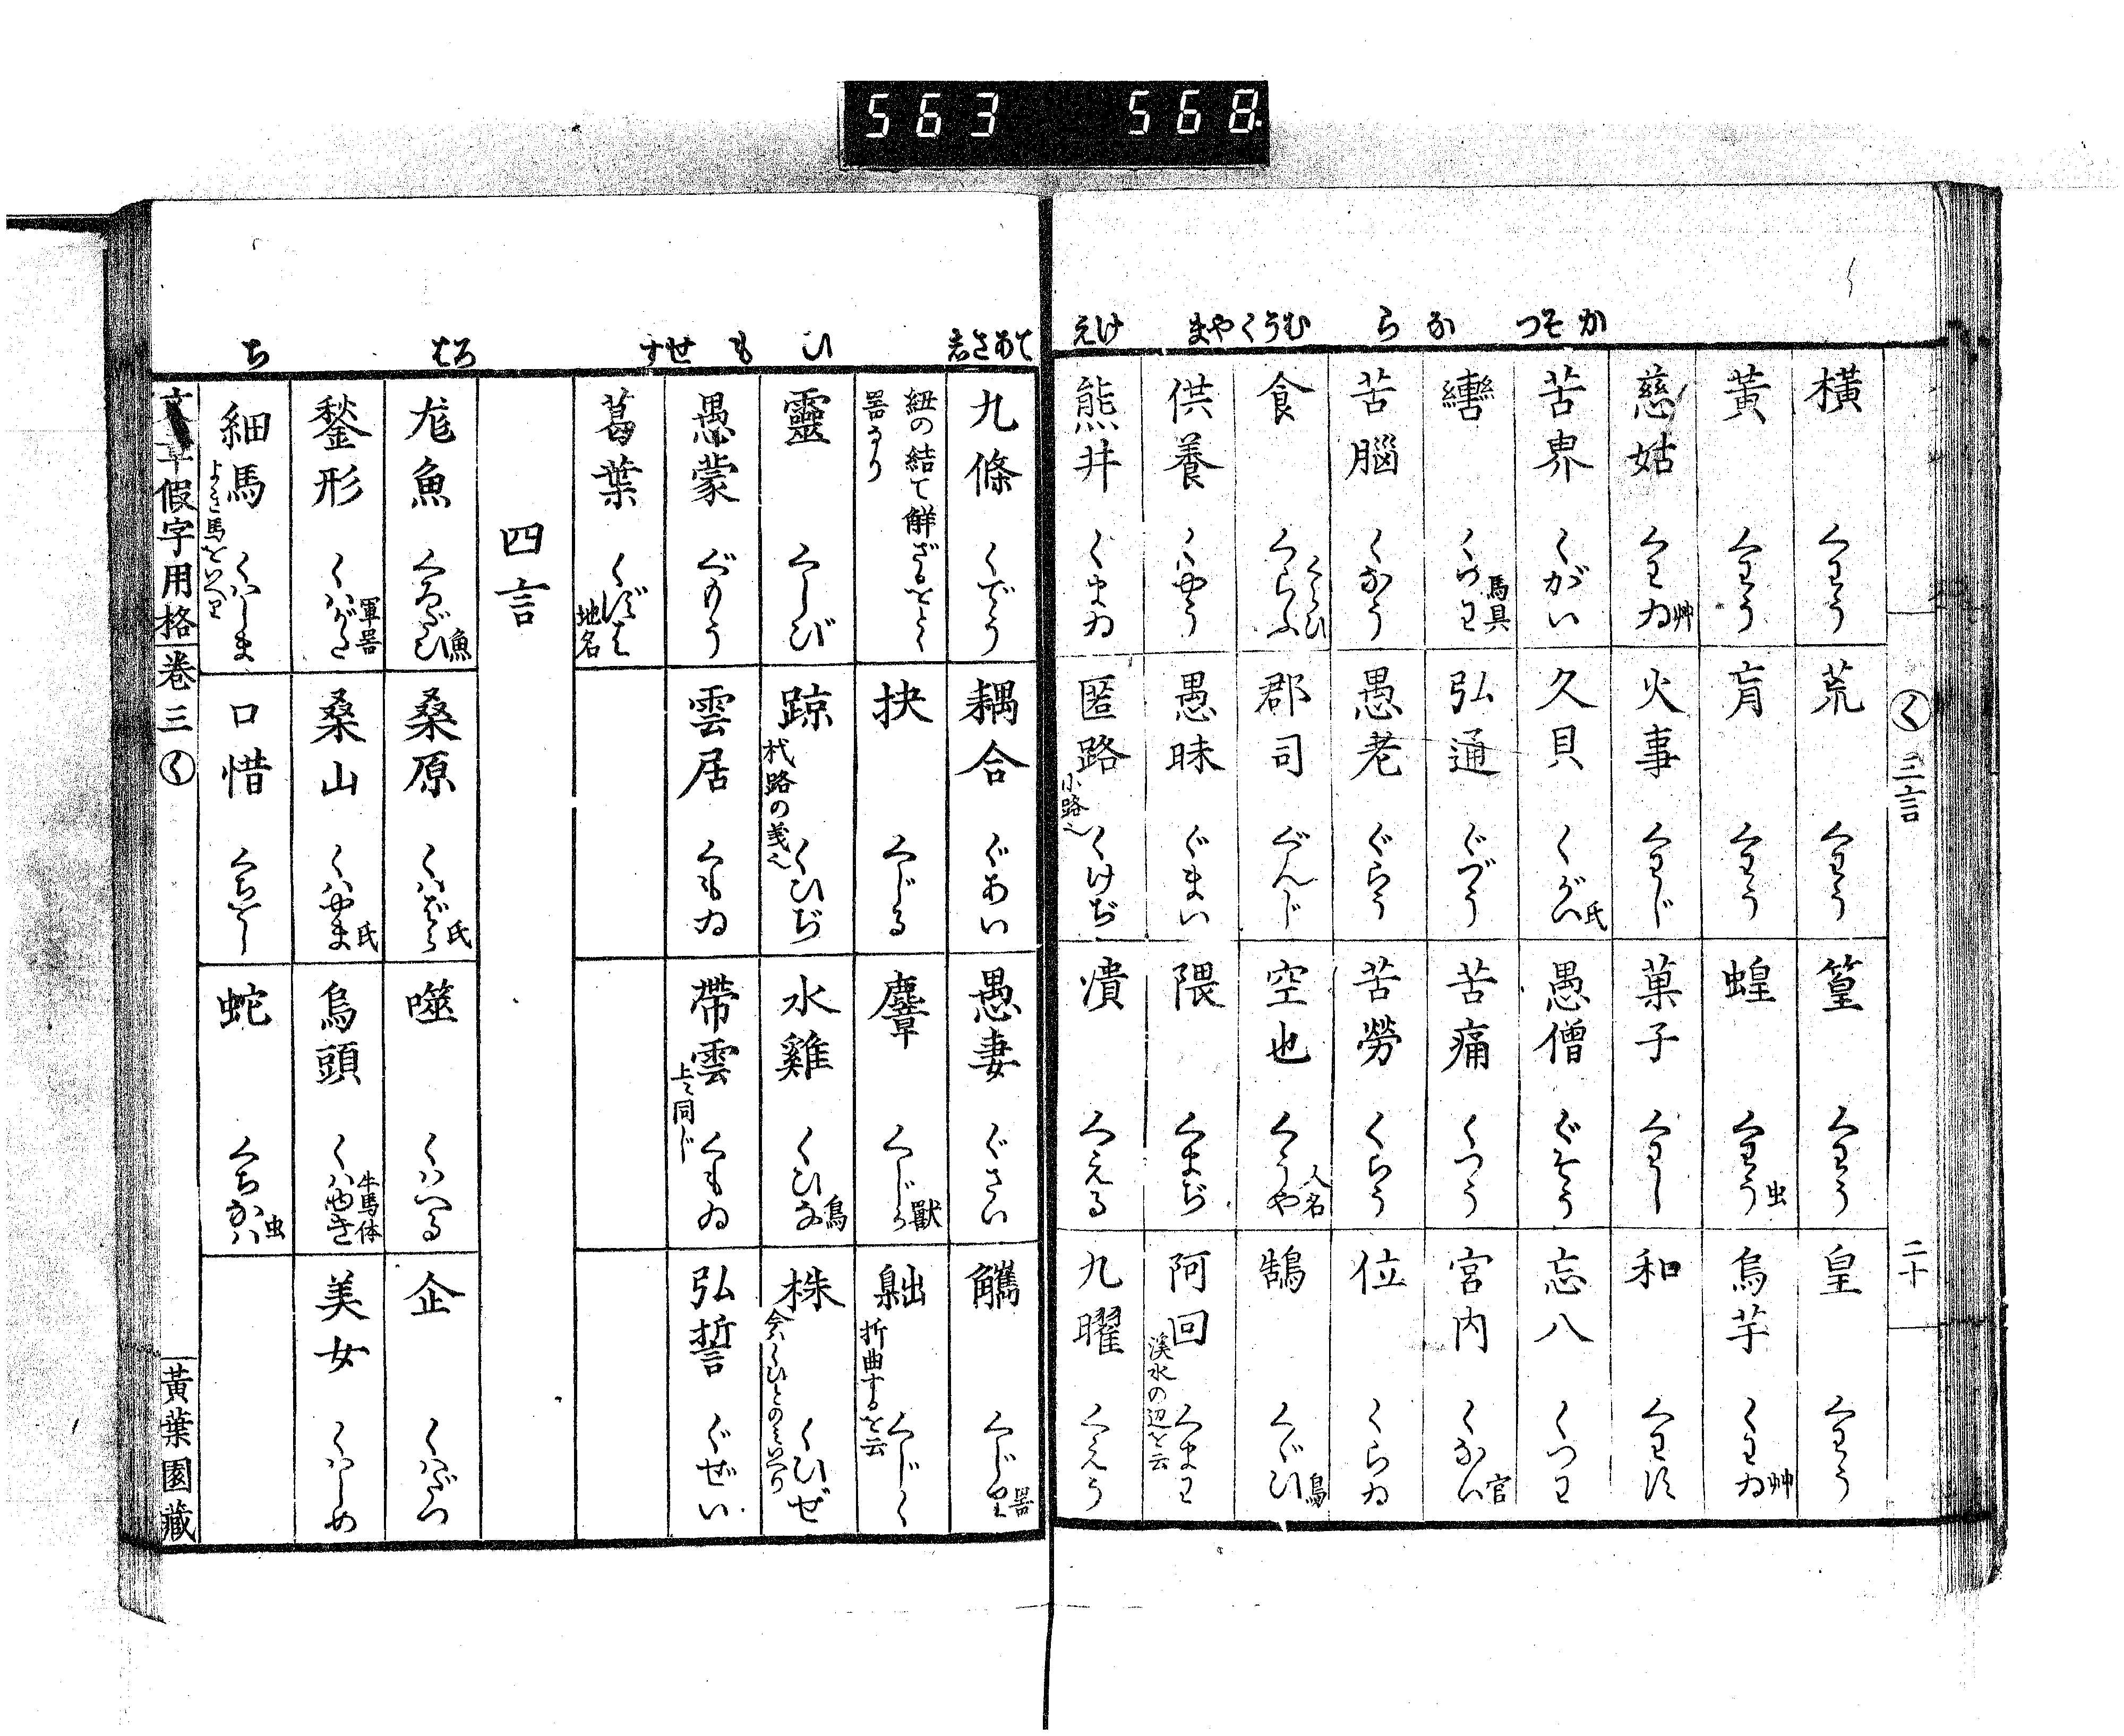 563 568
かそつ なら むうくやま けえ
く 三言 二十
横 くわう
荒 くわう
篁 くわう
皇 くわう
黄 くわう
肓 くわう
蝗 くわう 虫
烏芋 くわゐ 艸
慈姑 くわゐ 艸
火事 くわじ
菓子 くわし
和 くわす
苦界 くがい
久貝 くがい 氏
愚僧 ぐそう
忘八 くつわ
轡 くつわ 馬具
弘通 ぐづう
苦痛 くつう
宮内 くない 官
苦腦 くなう
愚老 ぐらう
苦勞 くらう
位 くらゐ
食 くらふ くらひ
郡司 ぐんじ
空也 くうや 人名
鵠 くぐひ 鳥
供養 くやう
愚昧 ぐまい
隈 くまぢ
阿回 くまわ 溪水の辺を云
熊井 くまゐ
匿路 くけぢ 小路也
潰 くえる
九曜 くえう
てあさ志 ひ も せす ろは ち
九條 くでう
耦合 ぐあい
愚妻 ぐさい
觿 くじり 噐
紐の結て解ざるをとく
噐なり
抉 くじる
麞 くじか 獣
折曲するを云 くじく
靈 くしび
踪 くひぢ 杙路の義也
水雞 くひな 鳥
株 くひぜ 今ハくひとのミいへり
愚蒙 ぐもう
雲居 くもゐ
帶雲 くもゐ 上ニ同じ
弘誓 ぐぜい
葛葉 くずは 地名
四言
尨魚 くろだひ 魚
桑原 くハばら 氏
噬 くハへる
企 くハだつ
鍫形 くハがた 軍噐
桑山 くハやま 氏
烏頭 くハゆき 牛馬体
美女 くハしめ
細馬 くハしま よき馬をいへり
口惜 くちをし
蛇 くちなハ 虫
文章假字用格 巻三 く 黄葉園藏